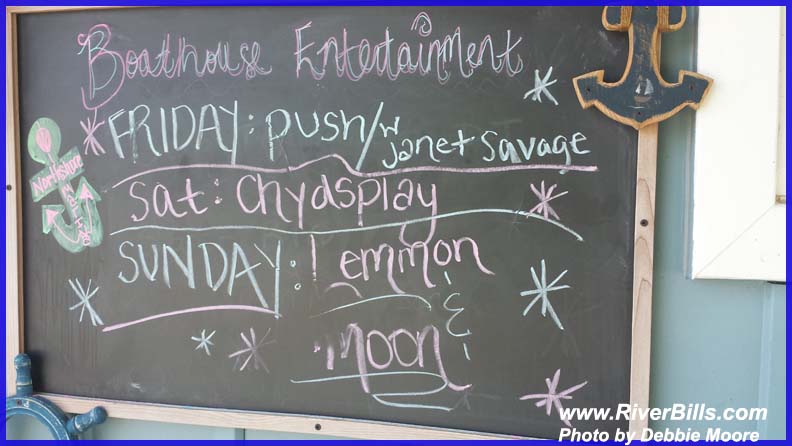 Boathouse Entertainment
FRIDAY: PUSH/w Janet Savage
Sat: Chydsplay
SUNDAY: Lemmon
&
moon
Northshore
www.RiverBills.com
Photo by Debbie Moore